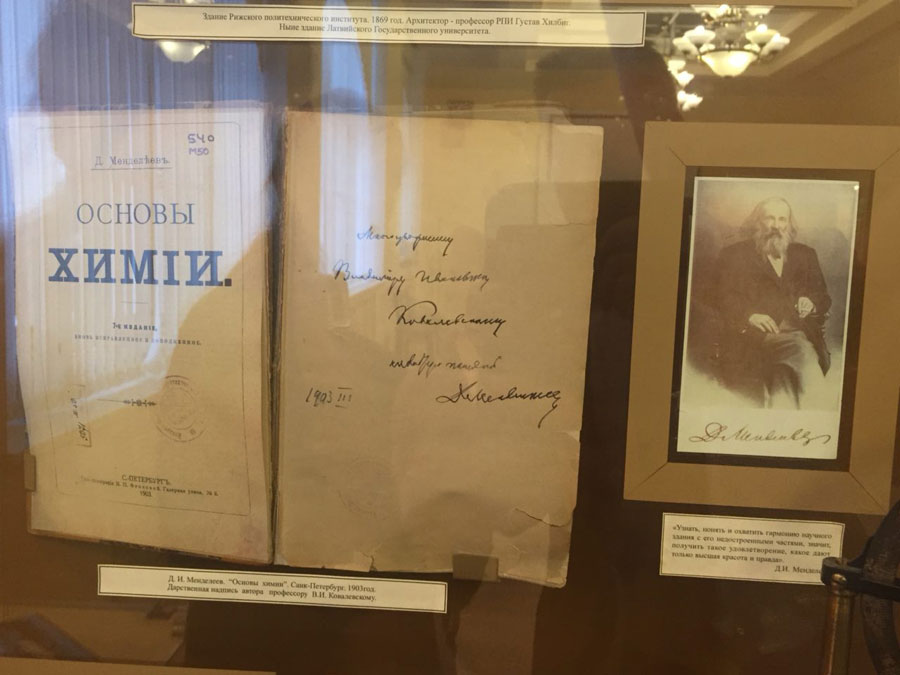 Здание Рижского политехнического института. 1869 год. Архитектор - профессор РПИ Густав Хилбиг.
Ныне здание Латвийского Государственного университета.
540
М50
Д. Менделѣевъ.
ОСНОВЫ
ХИМІИ.
7-е ИЗДАНІЕ,
ВНОВЬ ИСПРАВЛЕННОЕ И ДОПОЛНЕННОЕ.
С.-ПЕТЕРБУРГЪ.
1903
Владиміру Ивановичу
Ковалевскому
1903 III
Д. Менделѣевъ
Д. Менделѣевъ
Д. И. Менделеев. "Основы химии". Санк-Петербург. 1903год.
Дарственная надпись автора профессору В.И. Ковалевскому.
«Узнать, понять и охватить гармонию научного
здания с его недостроенными частями, значит,
получить такое удовлетворение, какое дают
только высшая красота и правда».
Д.И. Менделе